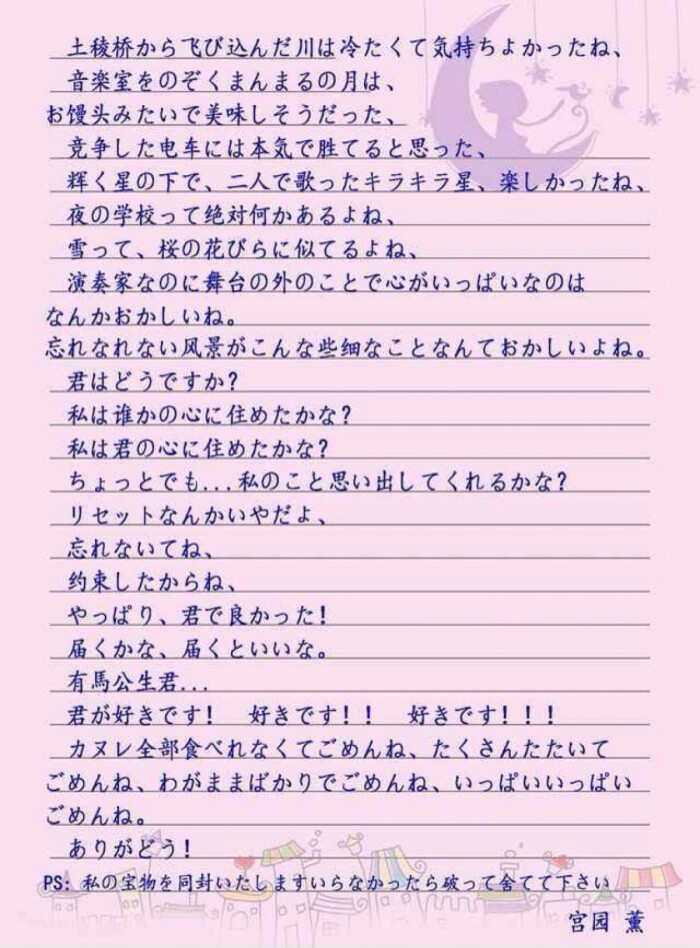 土稜桥から飛び込んだ川は冷たくて気持ちよかったね、
音楽室をのぞくまんまるの月は、
お馒头みたいで美味しそうだった、
竞争した电车には本気で胜てると思った、
輝く星の下で、二人で歌ったキラキラ星、楽しかったね、
夜の学校って绝対何かあるよね、
雪って、桜の花びらに似てるよね、
演奏家なのに舞台の外のことで心がいっぱいなのは
なんかおかしいね。
忘れなれない风景がこんな些细なことなんておかしいよね。
君はどうですか?
私は谁かの心に住めたかな?
私は君の心に住めたかな?
ちょっとでも...私のこと思い出してくれるかな?
リセットなんかいやだよ、
忘れないてね、
约束したからね、
やっぱり、君で良かった!
届くかな、届くといいな。
有馬公生君...
君が好きです! 好きです!! 好きです!!!
カヌレ全部食べれなくてごめんね、たくさんたたいて
ごめんね、わがままばかりでごめんね、いっぱいいっぱい
ごめんね。
ありがどう!
PS: 私の宝物を同封いたしますいらなかったら破って舍てて下さい
宫园 薫